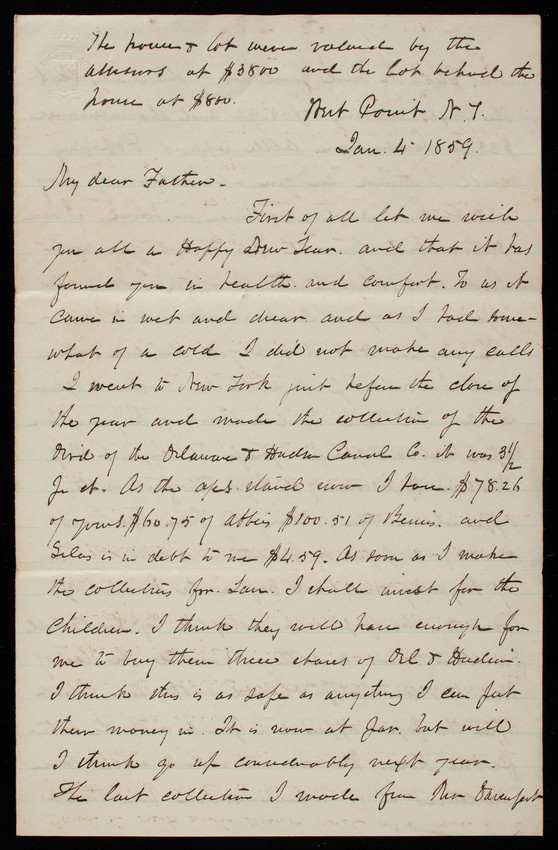 The house & lot were valued by the
assessors at $3800 and the lot behind the
house at $800.
West Point N.Y.
Jan. 4 1859.
My dear Father.
First of all let me wish
you all a Happy New Year. and that it has
found you in health and comfort. To us it
came in wet and drear and as I had some-
what of a cold I did not make any calls
I went to New York just before the close of
the year and made the collection of the
Divid of the Delaware & Hudson Canal Co. it was 3 1/2
pr ct. As the acts. stand now I have $78.26
of yours. $60.75 of Abbies $100.51 of Bennis. and
Silas is in debt to me $4.59. As soon as I make
the collections for Jan. I shall invest for the
Children. I think they will have enough for
me to buy them three shares of Del & Hudson.
I think this is as safe as anything I can put
their money in. It is now at par. but will
I think go up considerably next year.
The last collection I made from Davenport